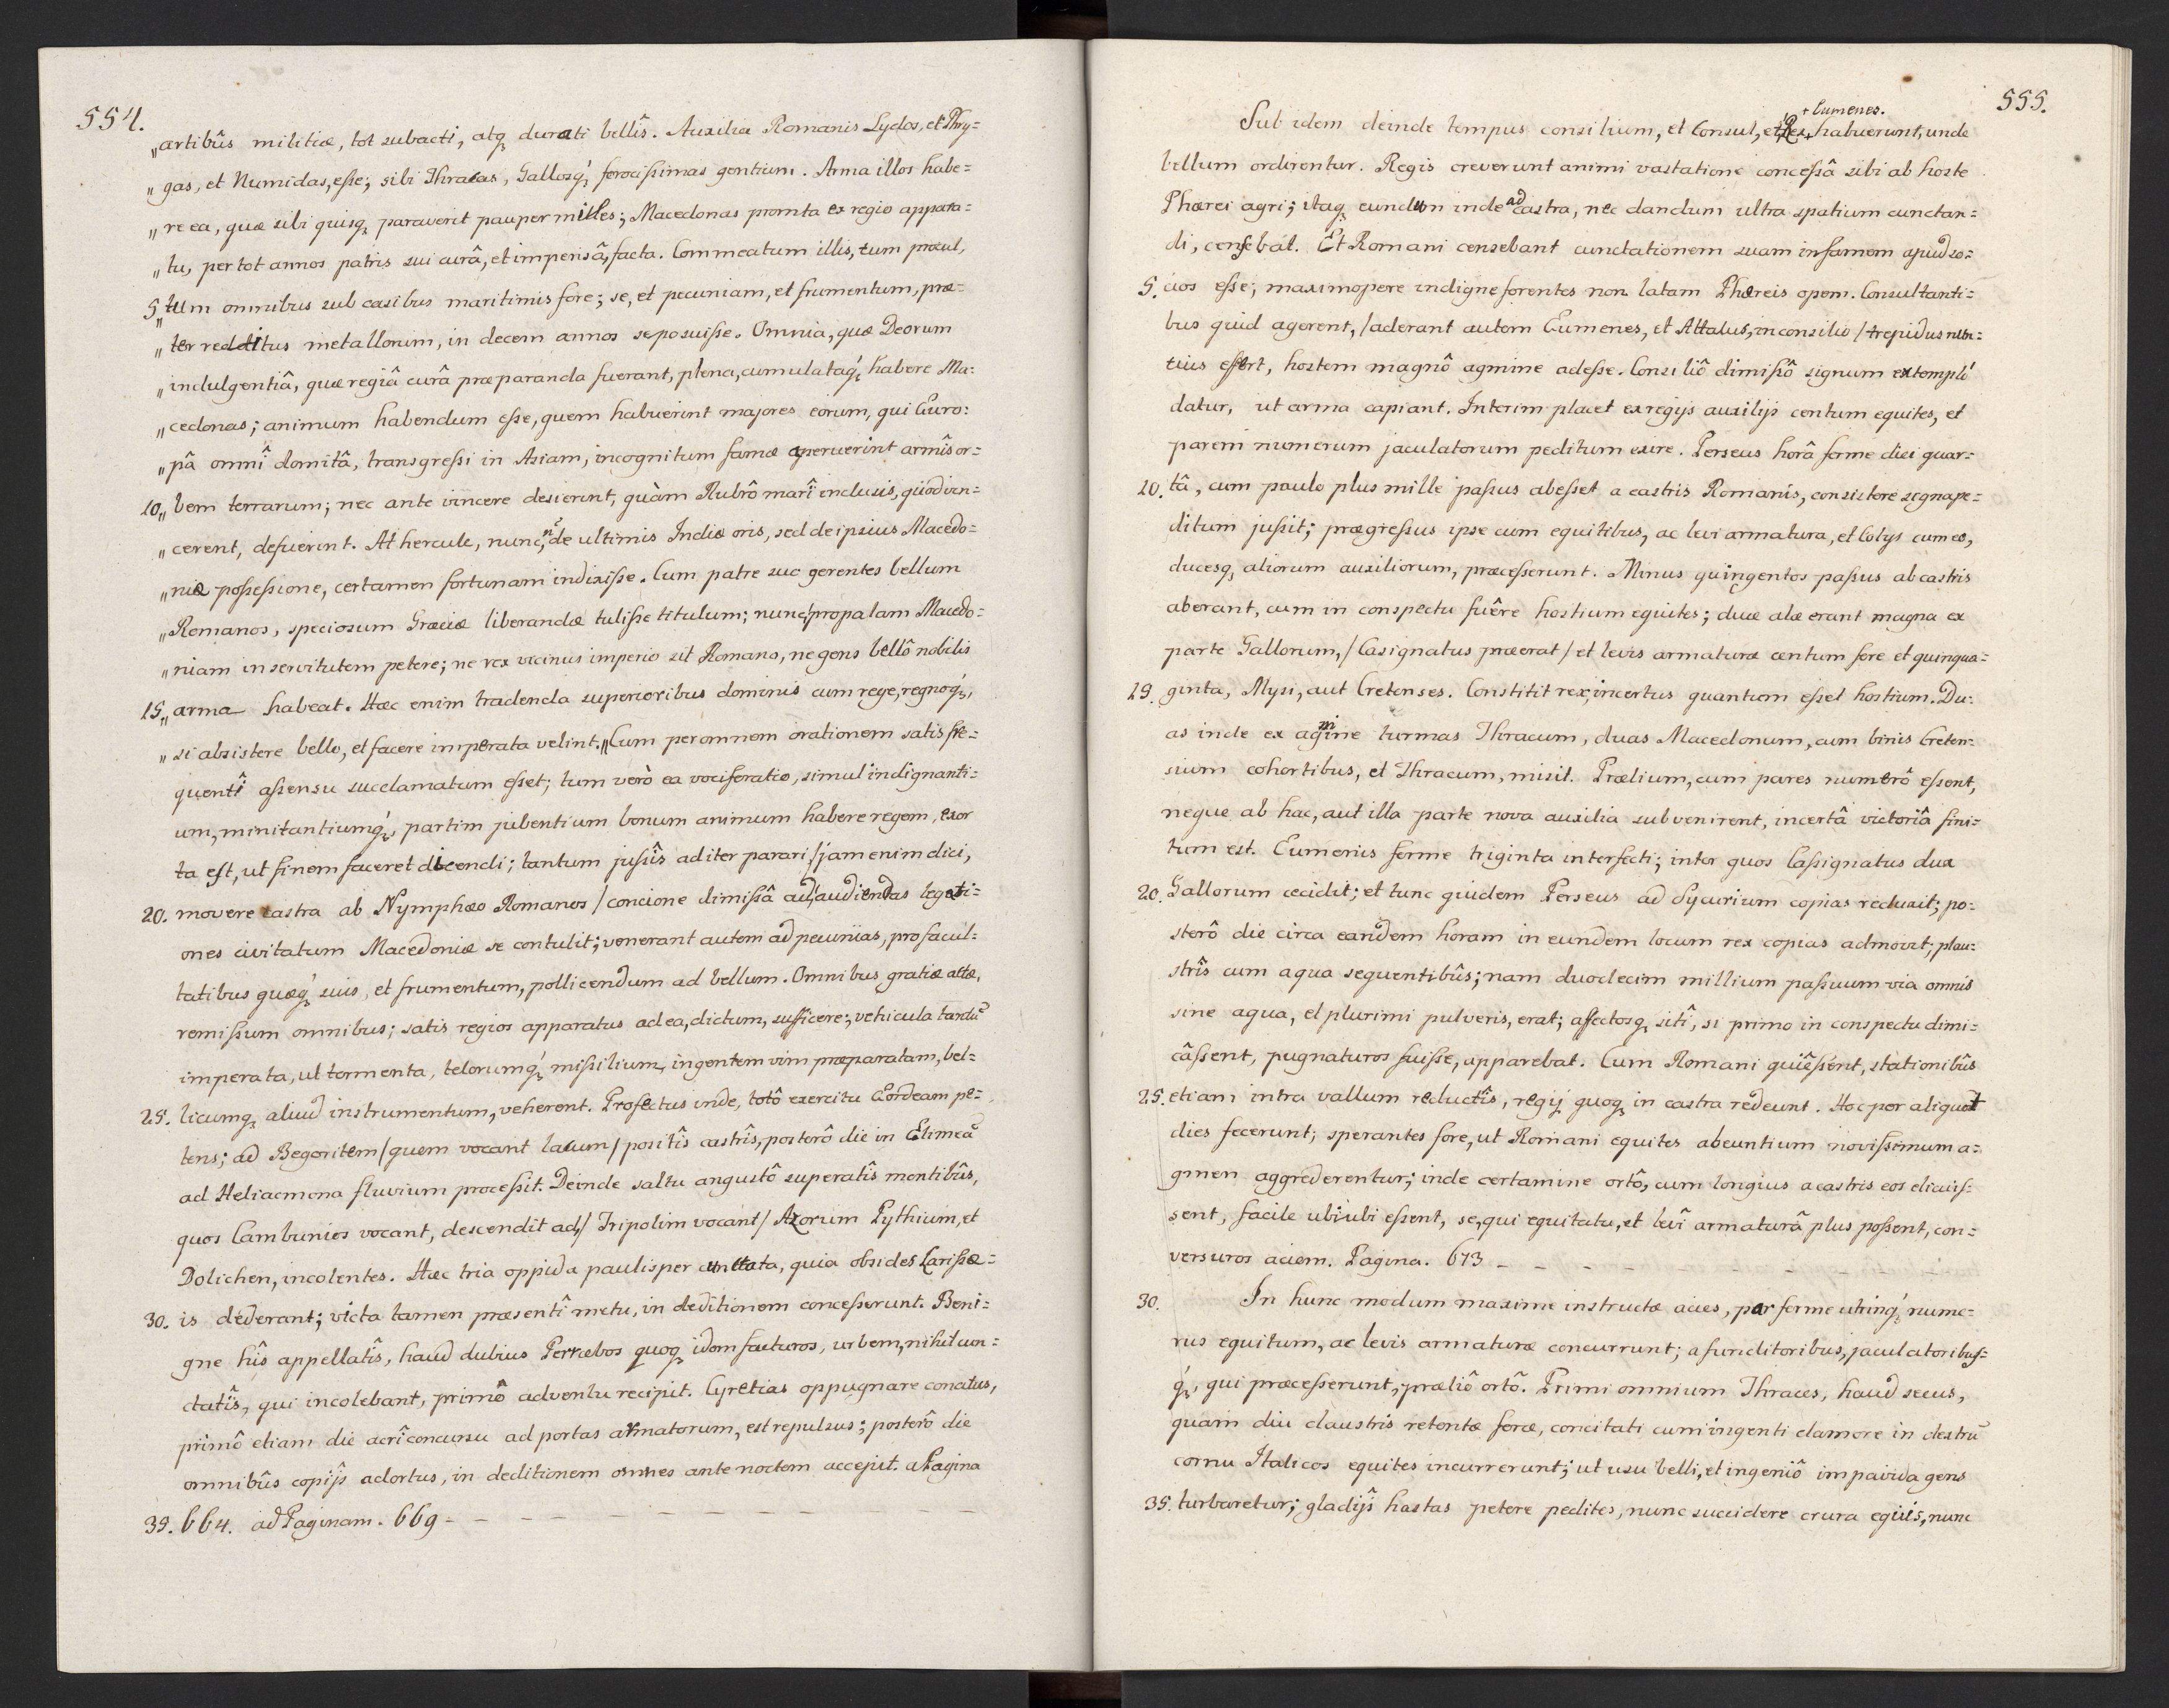 554.
„artibûs militiæ, tot subacti, atq durati bellîs. Auxilia Romanis Lydos, et Phry=
„gas, et Numidas, esse; sibi Thracas, Gallosq́, ferocissimas gentium. Arma illos habe=
„re ea, quæ sibi quisq paraverit pauper miles; Macedonas promta ex regio appara=
„tu, per tot annos patris sui curâ, et impensâ, facta. Commeatum illis, tum procul,
5„tum omnibus sub casibus maritimis fore; se, et pecuniam, et frumentum, præ=
„ter redditus metallorum, in decem annos seposuisse. Omnia, quæ Deorum
„indulgentiâ, quæ regiâ curâ præparanda fuerant, plena, cumulataq́, habere Ma=
„cedonas; animum habendum esse, quem habuerint majores eorum, qui Euro=
„pâ omnî domitâ, transgressi in Asiam, incognitum famæ aperuerint armîs or=
10„bem terrarum; nec ante vincere desierint, quàm Rubrô marî inclusis, quod vin=
„cerent, defuerint. At hercule, nunc, nõ de ultimis Indiæ oris, sed de ipsius Macedo=
„niæ possessione, certamen fortunam indixisse. Cum patre suo gerentes bellum
„Romanos, speciosum Græciæ liberandæ tulisse titulum; nunc, propalam Macedo=
„niam in servitutem petere; ne rex vicinus imperio sit Romano, ne gens bellô nobilis
15„arma habeat. Hæc enim tradenda superioribus dominis cum rege, regnoq́,
„si absistere bello, et facere imperata velint.„ Cum per omnem orationem satis fre=
quentî assensu succlamatum esset; tum verò ea vociferatio, simul indignanti=
um, minitantiumq́, partim jubentium bonum animum habere regem, exor
ta est, ut finem faceret dicendi; tantum jussîs ad iter parari /jam enim dici,
20. movere castra ab Nymphæo Romanos / concione dimissâ ad, audiendas legati=
ones civitatum Macedoniæ se contulit; venerant autem ad pecunias, pro facul=
tatibus quæq́ suis, et frumentum, pollicendum ad bellum. Omnibus gratiæ actæ,
remissum omnibus; satis regios apparatus ad ea, dictum, sufficere; vehicula tandũ
imperata, ut tormenta, telorumq́ missilium, ingentem vim præparatam, bel=
25. licumq aliud instrumentum, veherent. Profectus inde, totô exercitu Eordeam pe=
tens; ad Begoritem /quem vocant lacum/ positîs castrîs, posterô die in Elimeã
ad Heliacmona fluvium processit. Deinde saltu angustô superatîs montibûs,
quos Cambunios vocant, descendit ad,/ Tripolim vocant/ Azorum Pythium, et
Dolichen, incolentes. Hæc tria oppida paulisper cunctata, quia obsides Larissæ=
30. is dederant; victa tamen præsentî metu, in deditionem concesserunt. Beni=
gne hîs appellatîs, haud dubius Perrhæbos quoq idem facturos, urbem, nihil cun=
ctatîs, qui incolebant, primô adventu recipit. Cyretias oppugnare conatus,
primô etiam die acrî concursu ad portas armatorum, est repulsus; posterô die
omnibûs copijs adortus, in deditionem omnes ante noctem accepit. a Pagina
35. 664. ad Paginam. 669 - - - - - - - - - -
555.
+ Eumenes.
Sub idem deinde tempus consilium, et Consul, et Rex + habuerunt, unde
bellum ordirentur. Regis creverunt animi vastatione concessâ sibi ab hoste
Pheræi agri; itaq eundum inde ad castra, nec dandum ultra spatium cunctan=
di, censebat. Et Romani censebant cunctationem suam infamem apud so=
5. cios esse; maximopere indigne ferentes non latam Pheræis opem. Consultanti=
bus quid agerent, /aderant autem Eumenes, et Attalus, in consilio / trepidus nun=
tius effert, hostem magnô agmine adesse. Consiliô dimissô signum extemplò
datur, ut arma capiant. Interim placet ex regijs auxilijs centum equites, et
parem numerum jaculatorum peditum exire. Perseus horâ ferme diei quar=
10. tâ, cum paulo plus mille passus abesset a castris Romanis, consistere signa pe=
ditum jussit; prægressus ipse cum equitibus, ac levi armatura, et Cotys cum eo,
ducesq, aliorum auxiliorum, præcesserunt. Minus quingentos passus ab castris
aberant, cum in conspectu fuêre hostium equites; duæ alæ erant magna ex
parte Gallorum, /Casignatus præerat/ et levis armaturæ centum fere et quinqua=
15. ginta, Mysi, aut Cretenses. Constitit rex, incertus quantum esset hostium. Du=
as inde ex agmine turmas Thracum, duas Macedonum, cum binis Creten=
sium cohortibus, et Thracum, misit. Prælium, cum pares numerô essent,
neque ab hac, aut illa parte nova auxilia subvenirent, incertâ victoriâ fini=
tum est. Eumenis ferme triginta interfecti; inter quos Cassignatus dux
20. Gallorum cecidit; et tunc quidem Perseus ad Sycurium copias reduxit; po=
sterô die circa eandem horam in eundem locum rex copias admovit; plau=
strîs cum aqua sequentibûs; nam duodecim millium passuum via omnis
sine aqua, et plurimi pulveris, erat; affectosq sitî, si primo in conspectu dimi=
câssent, pugnaturos fuisse, apparebat. Cum Romani quiêssent, stationibûs
25. etiam intra vallum reductîs, regij quoq in castra redeunt. Hoc per aliquot
dies fecerunt; sperantes fore, ut Romani equites abeuntium novissimum a=
gmen aggrederentur; inde certamine ortô, cum longius a castris eos elicuis=
sent, facile ubiubi essent, se, qui equitatu, et levî armaturâ plus possent, con=
versuros aciem. Pagina. 673 - - - - - - - -
30. In hunc modum maxime instructæ acies, par ferme utrinq́ nume=
rus equitum, ac levis armaturæ concurrunt; a funditoribus, jaculatoribus=
q́, qui præcesserunt, præliô ortô. Primi omnium Thraces, haud secus,
quam diu claustris retentæ feræ, concitati cum ingenti clamore in dextrũ
cornu Italicos equites incurrerunt; ut usu belli, et ingeniô impavida gens
35. turbaretur; gladijs hastas petere pedites, nunc succidere crura equis, nunc